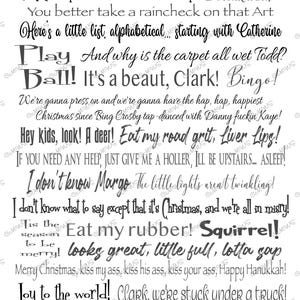 You better take a raincheck on that Art
Here's a little list, alphabetical... starting with Catherine
Play Ball! And why is the carpet all wet Todd?
It's a beaut, Clark! Bingo!
We're gonna press on and we're gonna have the hap, hap, happiest
Christmas since Bing Crosby tap-danced with Danny fuckin Kaye!
Hey kids, look! A deer! Eat my road grit, Liver Lips!
If you need any help, just give me a holler, I'll be upstairs... asleep!
I don't know Margo The little lights aren't twinkling!
I don't know what to say except that it's Christmas, and we're all in misery!
Tis the season to be merry! Eat my rubber! Squirrel!
looks great, little full, lotta sap
Merry Christmas, kiss my ass, kiss his ass, kiss your ass, Happy Hanukkah!
Joy to the world! Clark, we're stuck under a truck!